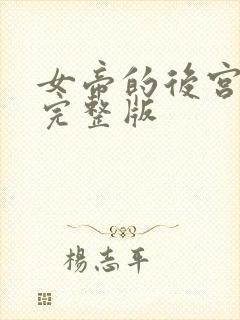 女帝的後宮
完整版
楊志平